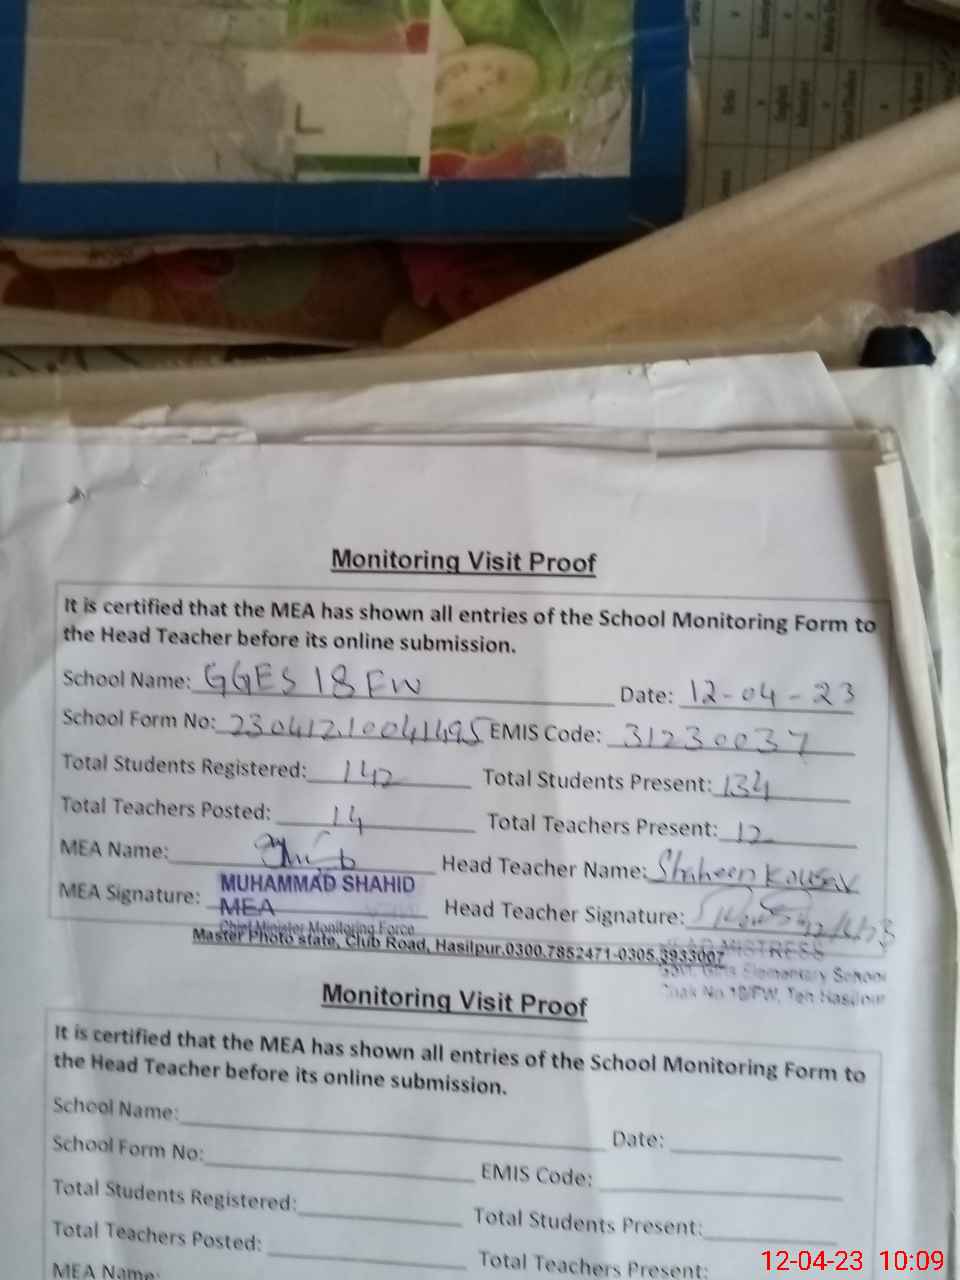 Monitoring Visit Proof
It is certified that the MEA has shown all entries of the School Monitoring Form to
the Head Teacher before its online submission.
School Name: GGES 18 FW Date: 12-04-23
School Form No: 23041210041495 EMIS Code: 31230037
Total Students Registered: 142 Total Students Present: 134
Total Teachers Posted: 14 Total Teachers Present: 12
MEA Name: Head Teacher Name: Shaheen Kousar
MEA Signature: MUHAMMAD SHAHID Head Teacher Signature:
MEA
Chief Minister Monitoring Force
Master Photo state, Club Road, Hasilpur.0300.7852471-0305.3933007
HEAD MISTRESS
Govt. Girls Elementary School
Chak No 18/FW, Teh Hasilpur
Monitoring Visit Proof
It is certified that the MEA has shown all entries of the School Monitoring Form to
the Head Teacher before its online submission.
School Name: Date:
School Form No: EMIS Code:
Total Students Registered: Total Students Present:
Total Teachers Posted: Total Teachers Present:
MEA Name:
12-04-23 10:09